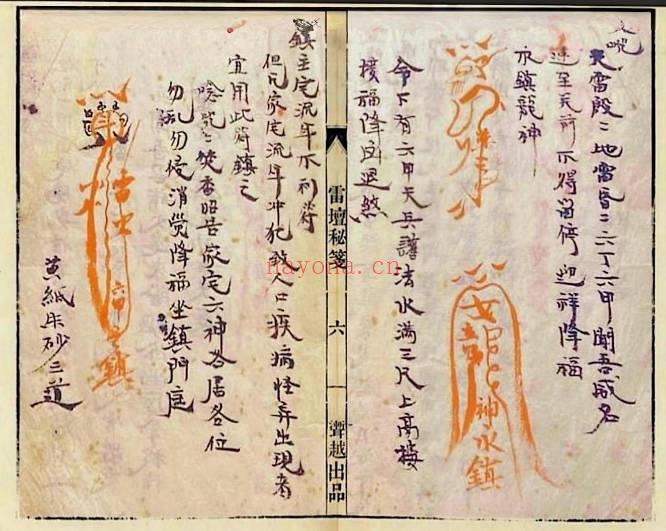 天雷殷二地雷昏二六丁六甲聞吾威名
速至天前不得留停迎祥降福
永鎮龍神
神水鎮
令下有六甲天兵護法水滿三尺上高楼
接福降凶退煞
雷壇秘箋
六
一
灋越出品
鎮主宅流年不利符
但凡家宅流年冲犯致人口疾病怪异出現者
宜用此符鎮之
焚香昭告家宅六神各居各位
勿乱勿侵消灾降福坐鎮門庭
六甲
鎮
黄紙朱砂三道
nayona.cn